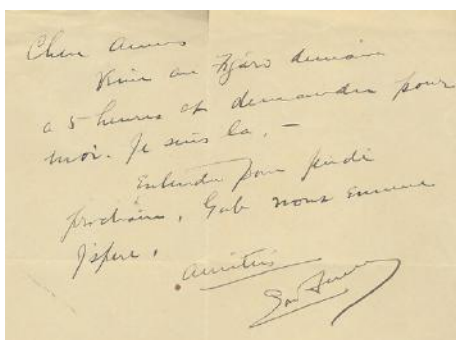 Cher Amis
Venir au Figaro demain
a 5 heures et demander pour
moi. Je suis la. –
Entendu pour jeudi
prochain, Gab nous emmene
J'spere.
Amitiés